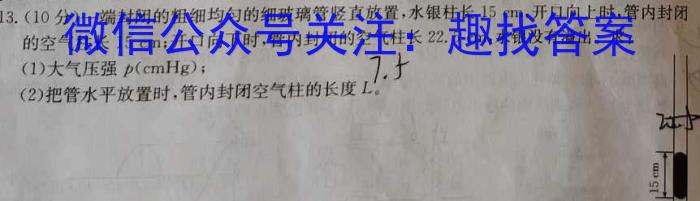 13.(10分)一端封闭的粗细均匀的细玻璃管竖直放置,水银柱长15 cm,开口向上时,管内封闭
的空气柱长 开口向下时,管内封闭的空气柱长22. 水银没有溢出
微信公众号关注：趣找答案
(1)大气压强 p(cmHg);
7.5
(2)把管水平放置时,管内封闭空气柱的长度 L。
22.5
15 cm